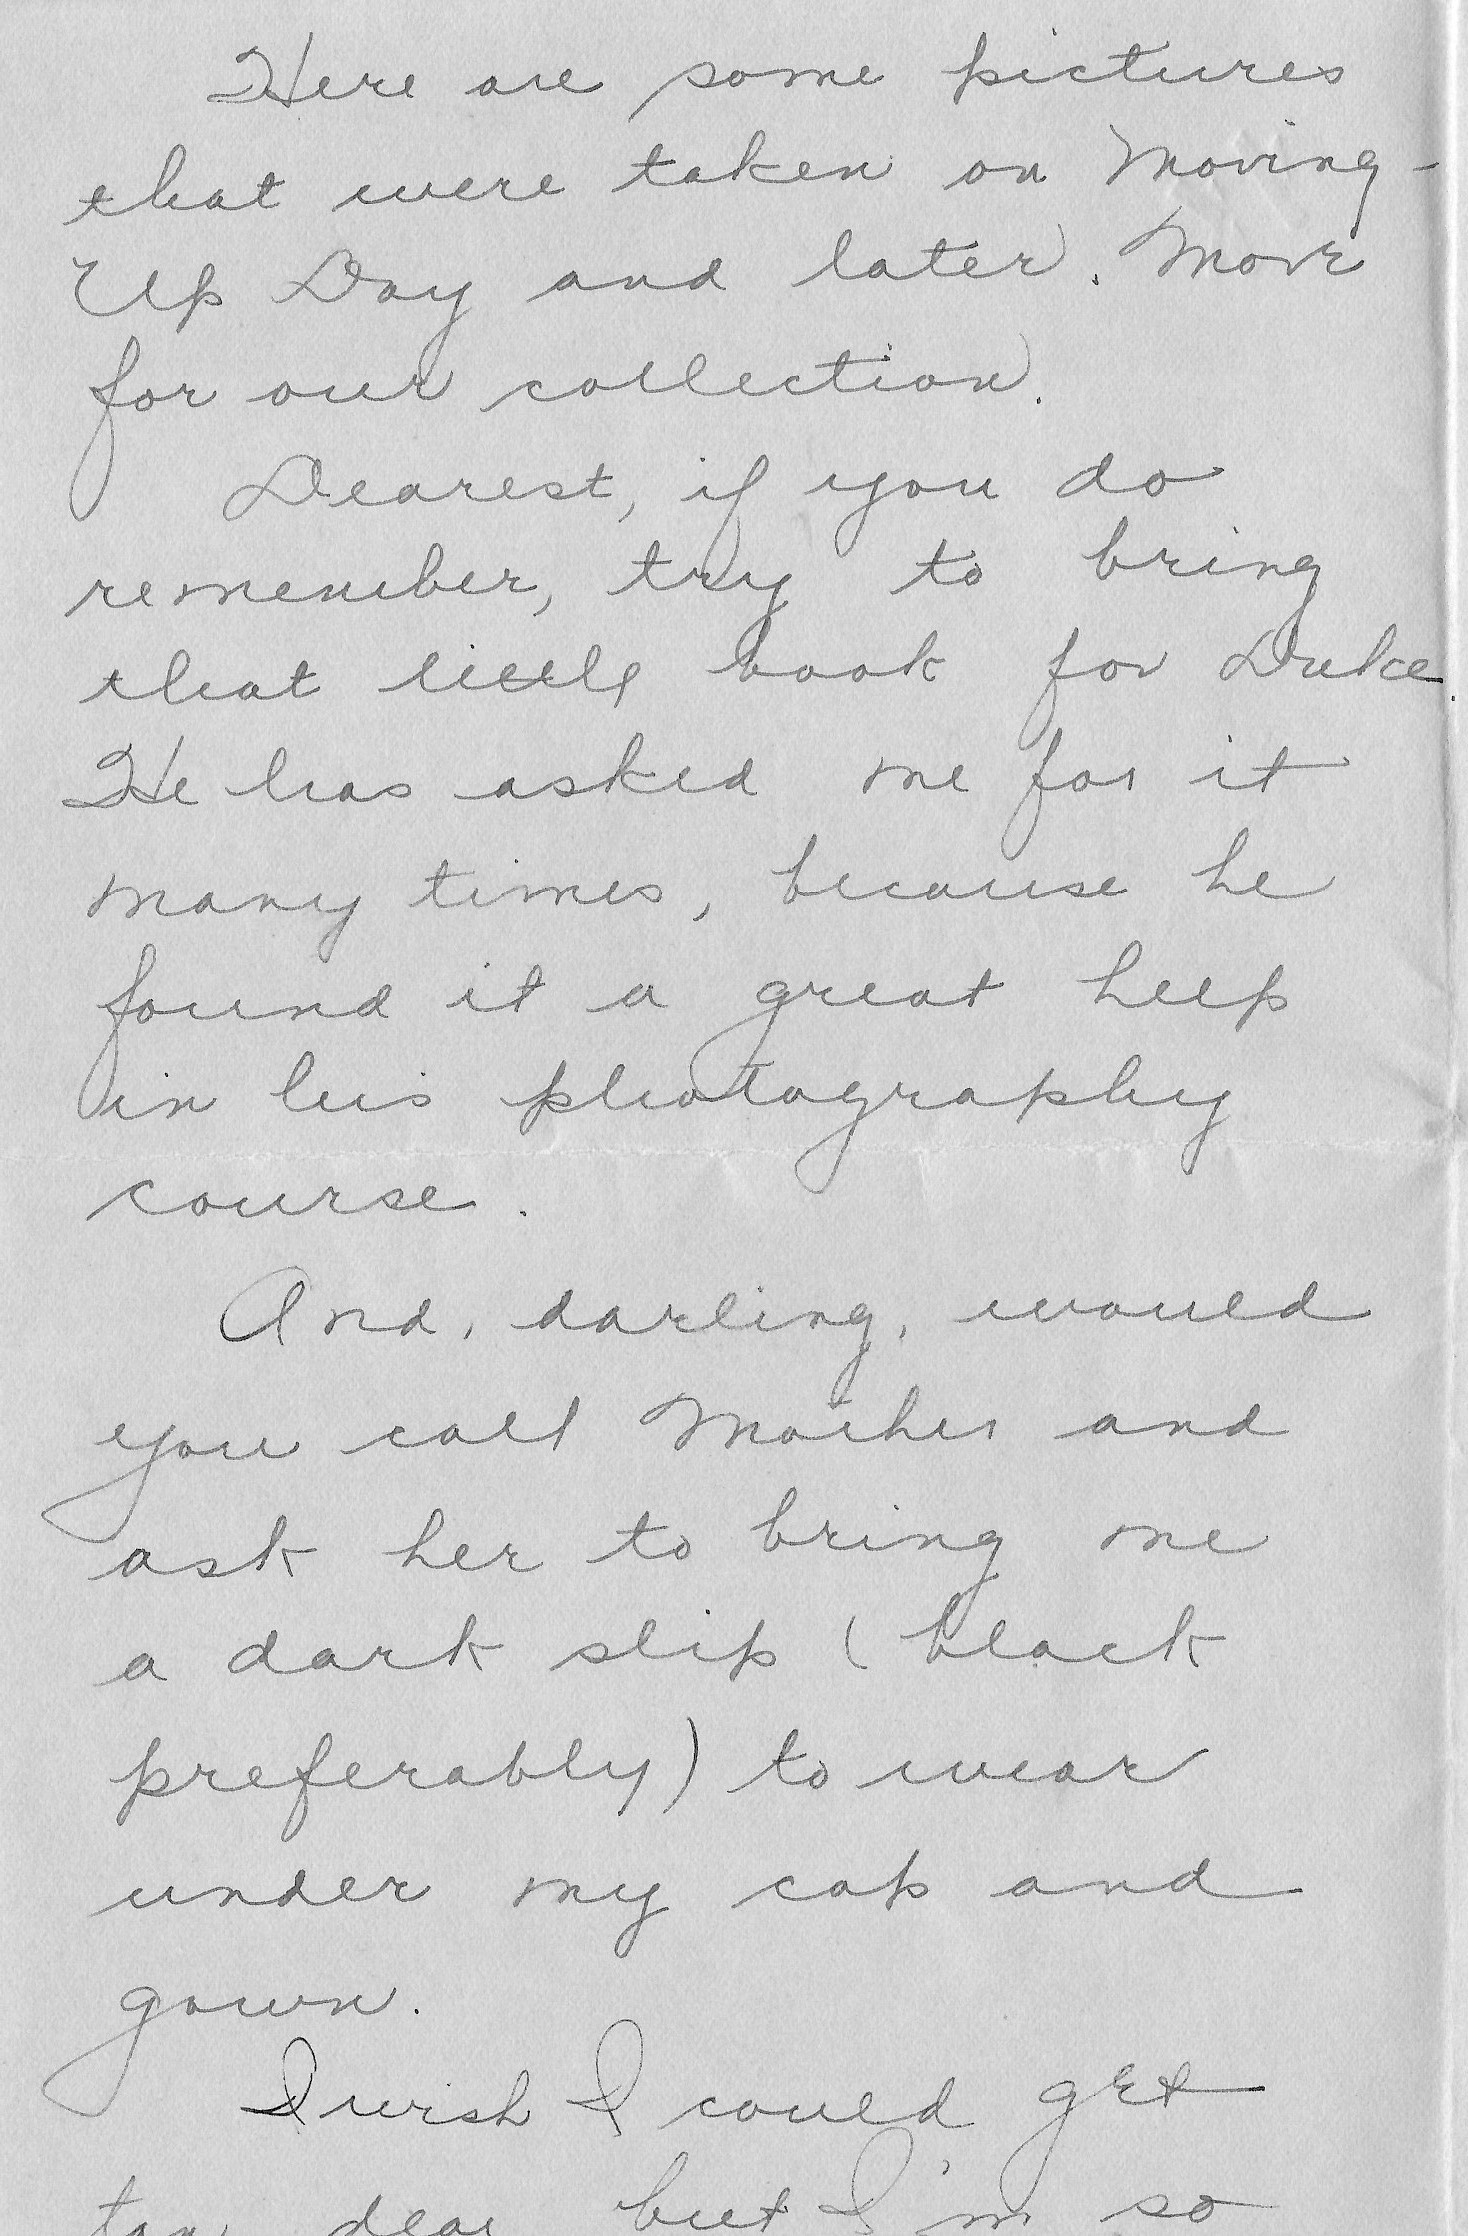 Here are some pictures
that were taken on Moving-
Up Day and later. More
for our collection.
Dearest, if you do
remember, try to bring
that little book for Duke.
He has asked me for it
many times, because he
found it a great help
in his photography
course.
And, darling, would
you call Mother and
ask her to bring me
a dark slip (black
preferably) to wear
under my cap and
gown.
I wish I could get
tan, dear, but I'm so